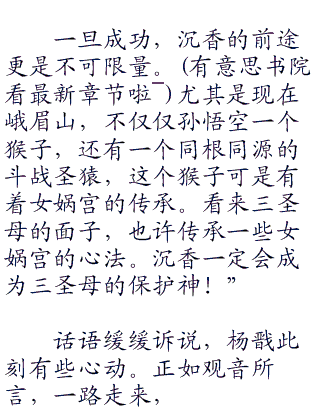 一旦成功，沉香的前途
更是不可限量。 (有意思书院
看最新章节啦¯) 尤其是现在
峨眉山，不仅仅孙悟空一个
猴子，还有一个同根同源的
斗战圣猿，这个猴子可是有
着女娲宫的传承。看来三圣
母的面子，也许传承一些女
娲宫的心法。沉香一定会成
为三圣母的保护神！”
话语缓缓诉说，杨戬此
刻有些心动。正如观音所
言，一路走来，